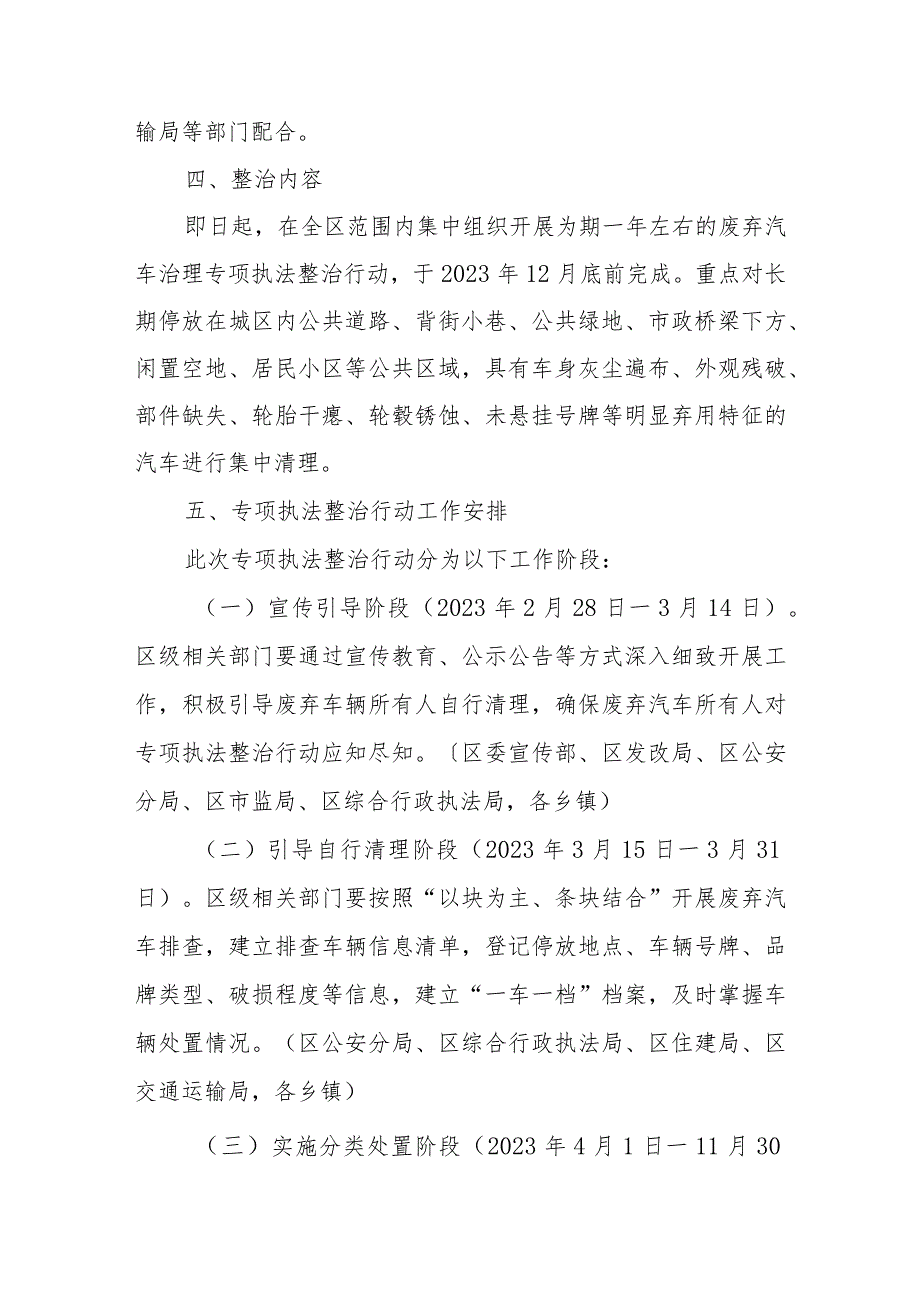 输局等部门配合。
四、整治内容
即日起，在全区范围内集中组织开展为期一年左右的废弃汽
车治理专项执法整治行动，于 2023 年 12 月底前完成。重点对长
期停放在城区内公共道路、背街小巷、公共绿地、市政桥梁下方、
闲置空地、居民小区等公共区域，具有车身灰尘遍布、外观残破、
部件缺失、轮胎干瘪、轮毂锈蚀、未悬挂号牌等明显弃用特征的
汽车进行集中清理。
五、专项执法整治行动工作安排
此次专项执法整治行动分为以下工作阶段：
（一）宣传引导阶段（2023 年 2 月 28 日一 3 月 14 日）。
区级相关部门要通过宣传教育、公示公告等方式深入细致开展工
作，积极引导废弃车辆所有人自行清理，确保废弃汽车所有人对
专项执法整治行动应知尽知。〔区委宣传部、区发改局、区公安
分局、区市监局、区综合行政执法局，各乡镇）
（二）引导自行清理阶段（2023 年 3 月 15 日一 3 月 31
日）。区级相关部门要按照“以块为主、条块结合”开展废弃汽
车排查，建立排查车辆信息清单，登记停放地点、车辆号牌、品
牌类型、破损程度等信息，建立“一车一档”档案，及时掌握车
辆处置情况。（区公安分局、区综合行政执法局、区住建局、区
交通运输局，各乡镇）
（三）实施分类处置阶段（2023 年 4 月 1 日一 11 月 30